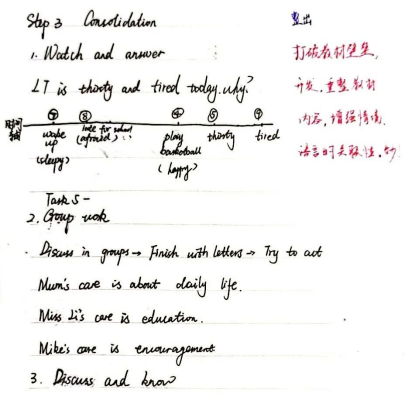 Step 3 Consolidation
整出
1. Watch and answer
打破教材壁垒,
LT is thirsty and tired today. why?
开发,重整教材
⑦ ⑧ ④ ⑤ ⑨
内容,增强情境、
时间轴
wake up (sleepy)
late for school (afraid)
play basketball (happy)
thirsty
tired
语言的关联性,
Task 5 -
2. Group work
Discuss in groups → Finish with letters → Try to act
Mum's care is about daily life.
Miss Li's care is education.
Mike's care is encouragement
3. Discuss and know